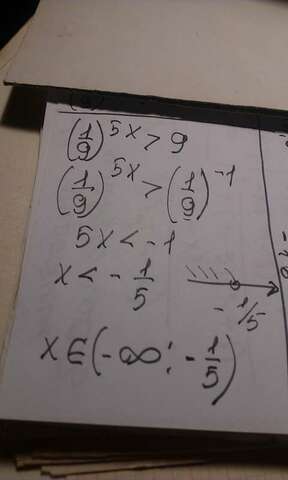 (1/9)^5x > 9
(1/9)^5x > (1/9)^-1
5x < -1
x < - 1/5
- 1/5
x ∈ (-∞; - 1/5)